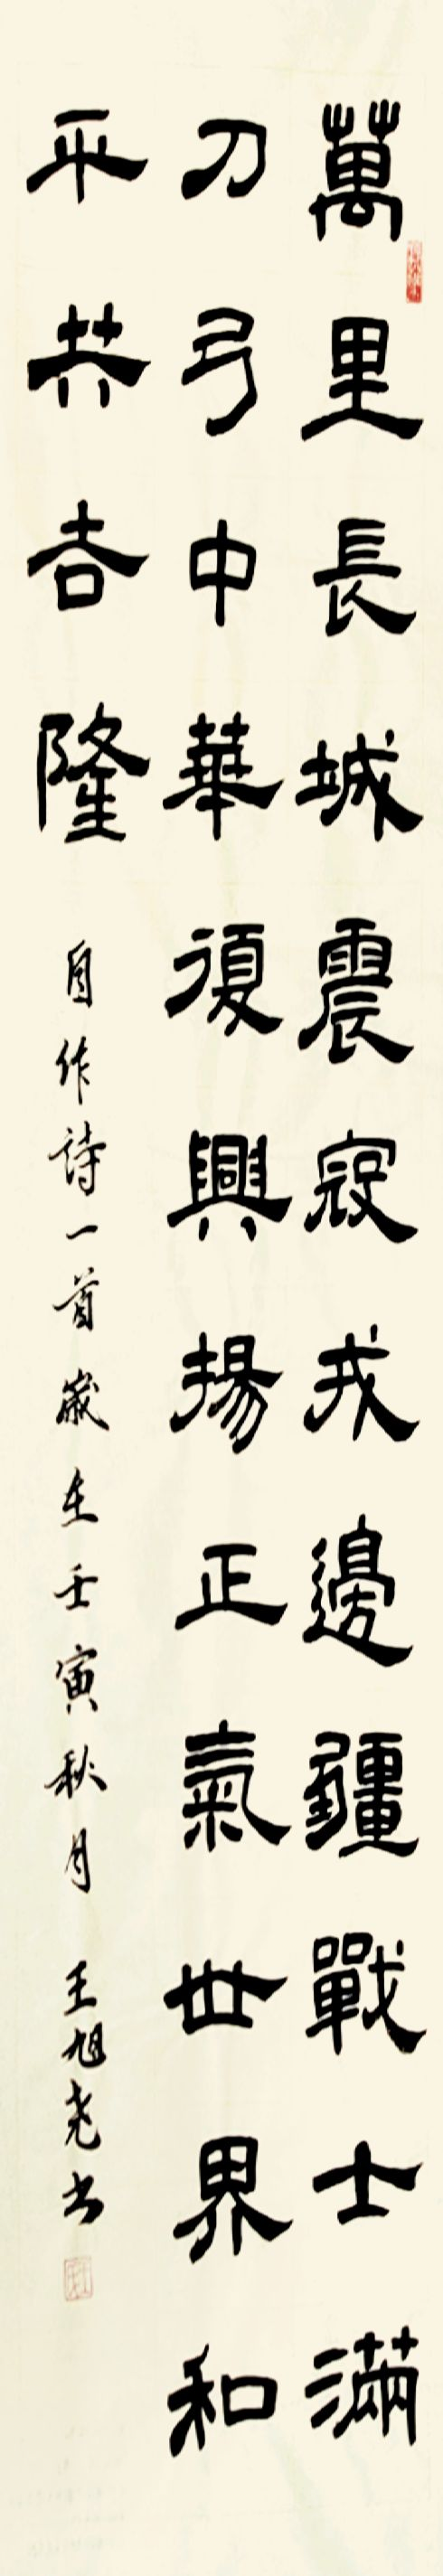 萬里長城震寇戎邊疆戰士滿
刀弓中華復興揚正氣世界和
平共吉隆
自作詩一首歲在壬寅秋月 王旭尧书